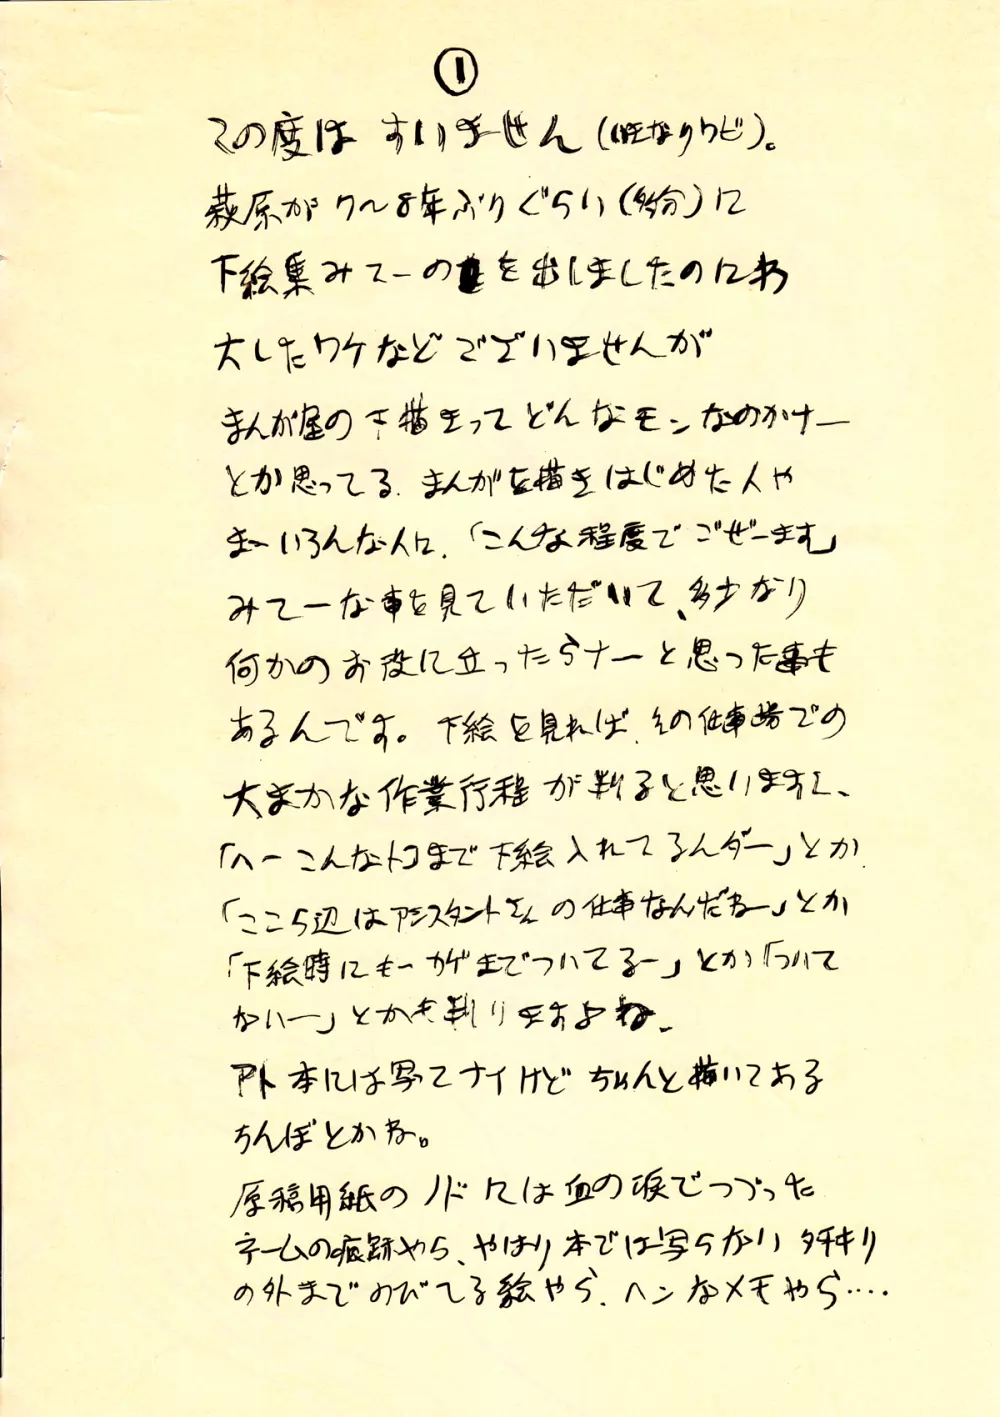 ①
この度は すいません(いきなりワビ)。
萩原が7〜8年ぶりぐらい(多分)に
下絵集みてーのを出しましたのにわ
大したワケなどございませんが
まんが屋の下描きってどんなモンなのかナー
とか思ってる、まんがを描きはじめた人や
まーいろんな人に、「こんな程度でごぜーます」
みてーな事を見ていただいて、多少なり
何かのお役に立ったらナーと思った事も
あるんです。下絵を見れば、その仕事場での
大まかな作業行程が判ると思いますし、
「へーこんなトコまで下絵入れてるんダー」とか
「ここら辺はアシスタントさんの仕事なんだねー」とか
「下絵時にもーカゲまでついてるー」とか「ついて
ないー」とかも判りますよね、
アト本には写ってナイけどちゃんと描いてある
ちんぽとかね。
原稿用紙のノドには血の涙でつづった
ネームの痕跡やら、やはり本では写らない タチキリ
の外までのびてる絵やら、ヘンなメモやら‥‥